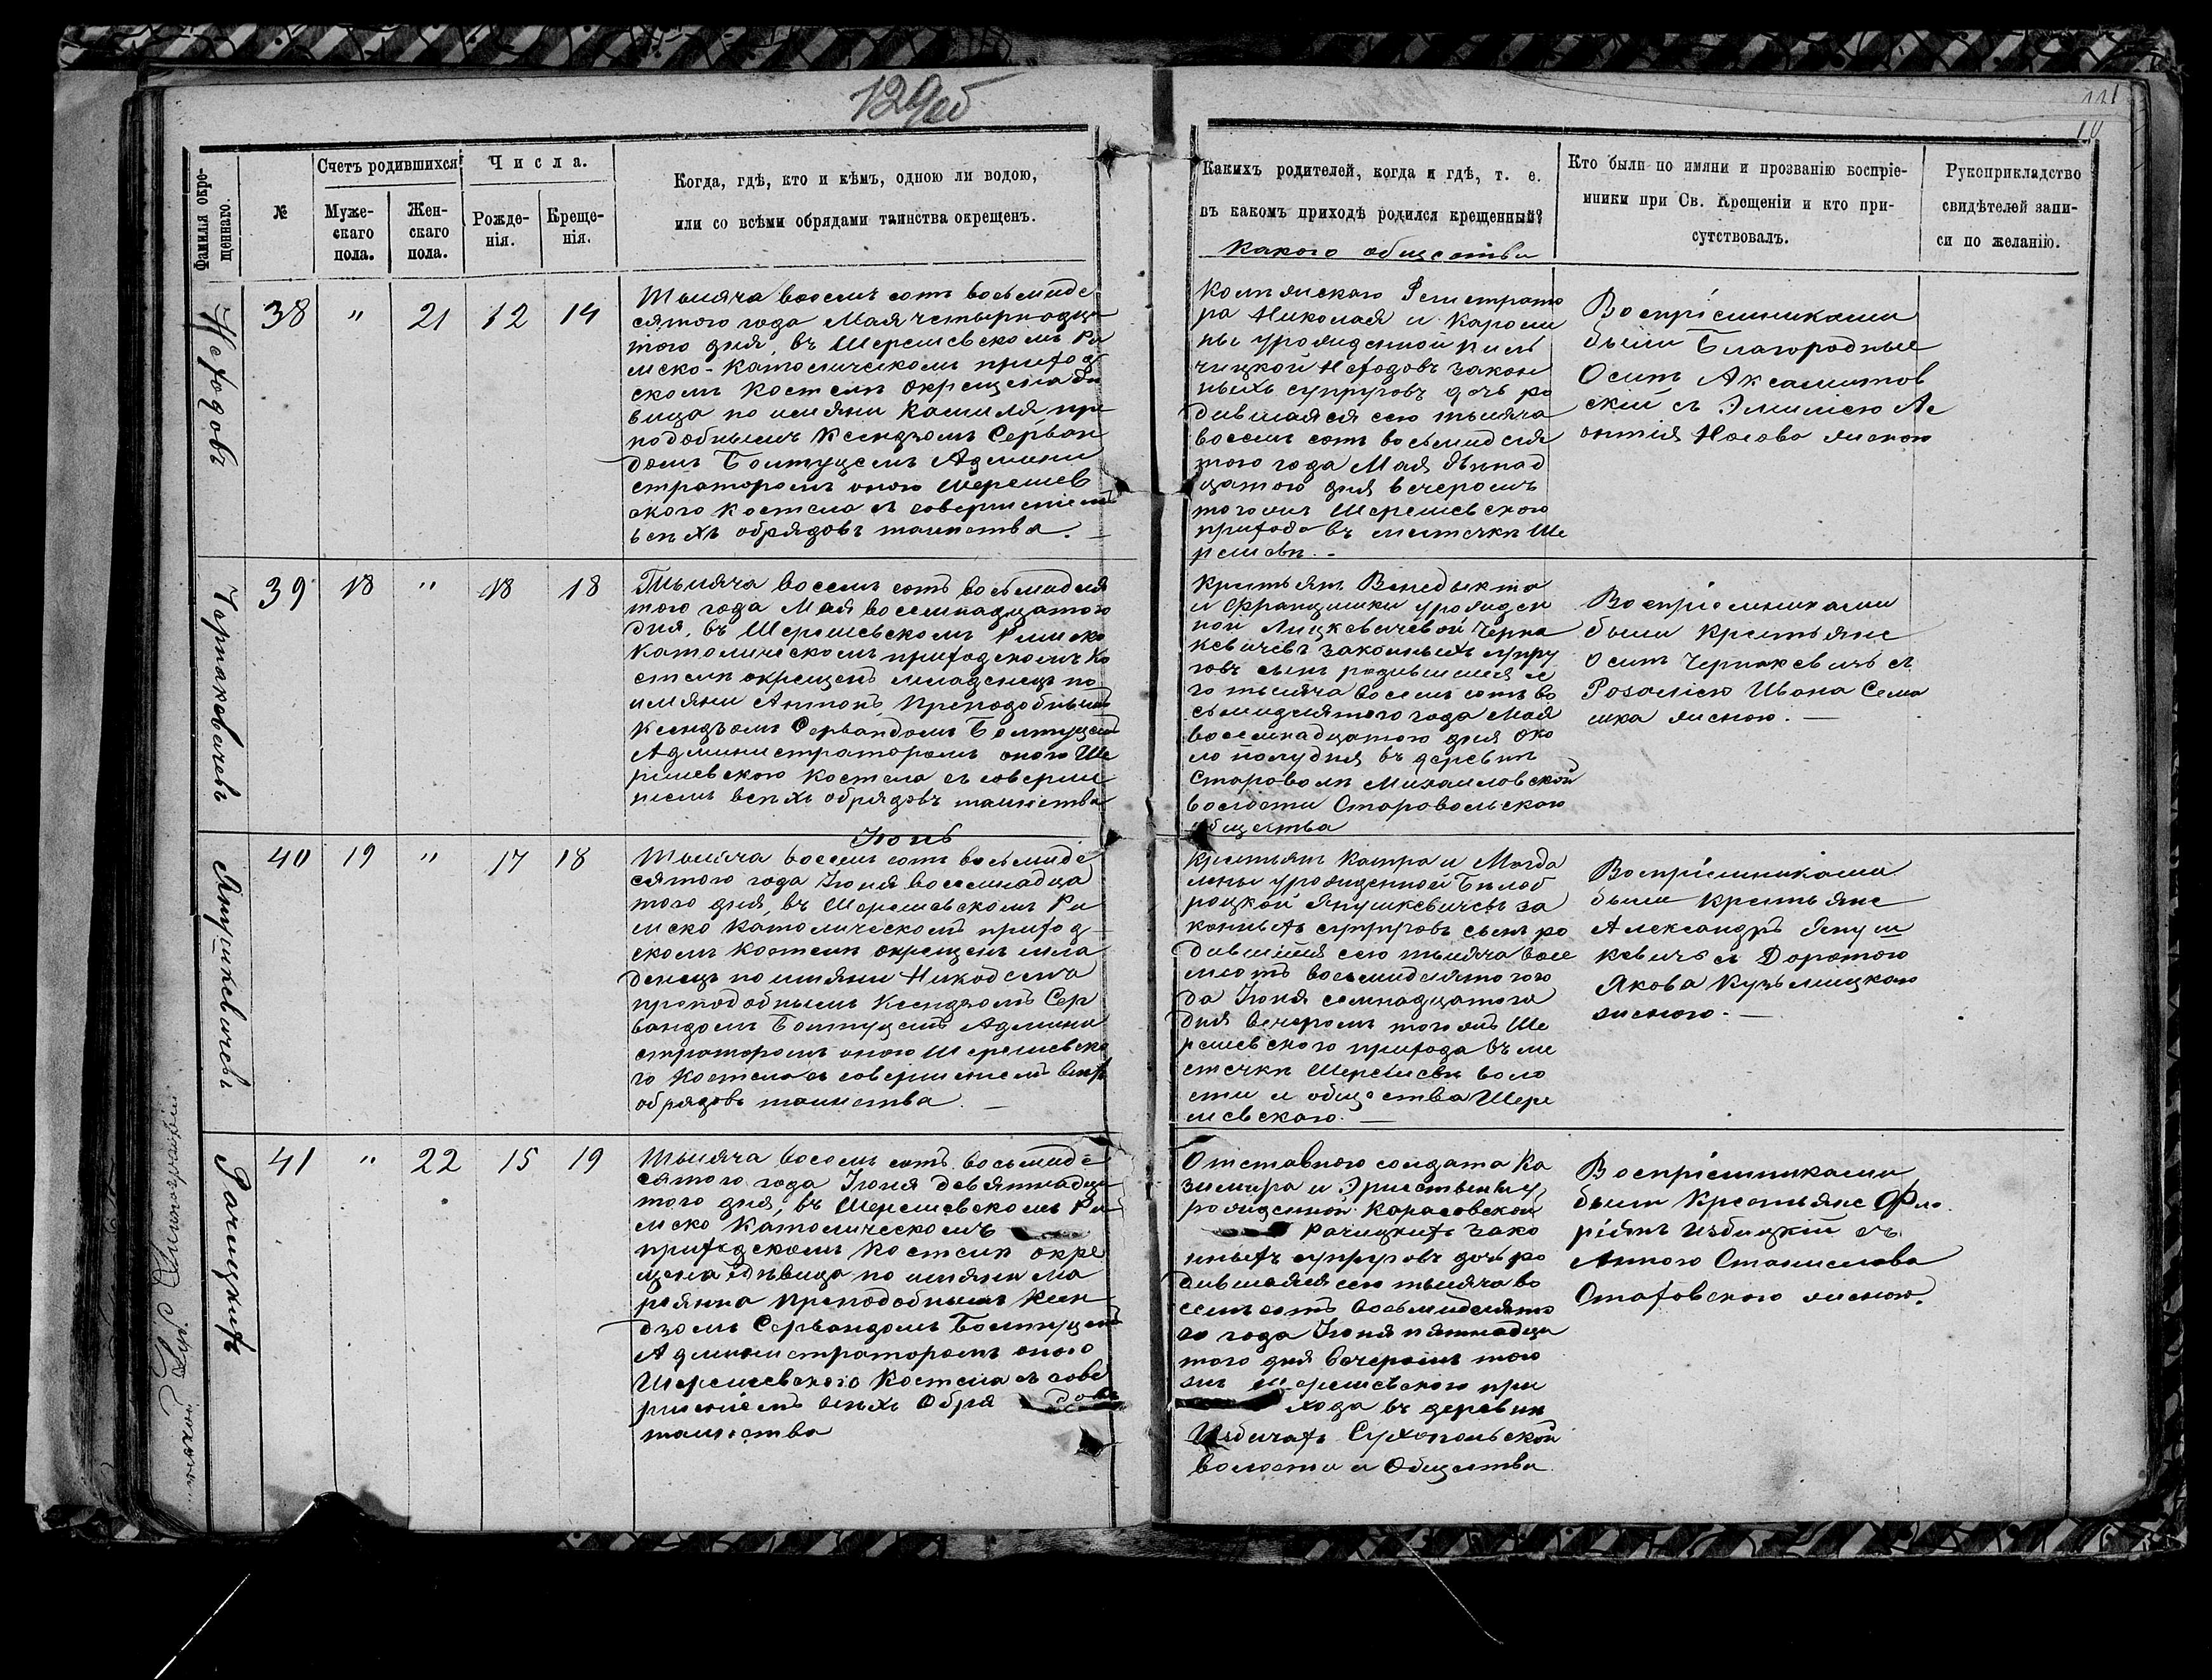 129об
111
10
Фамилія окрещеннаго.
№
Счетъ родившихся
Мужескаго пола.
Женскаго пола.
Числа.
Рожденія.
Крещенія.
Когда, гдѣ, кто и кѣмъ, одною ли водою,
или со всѣми обрядами таинства окрещенъ.
Какихъ родителей, когда и гдѣ, т. е.
въ какомъ приходѣ родился крещенный?
Какого общества
Кто были по имяни и прозванію воспріе-
мники при Св. Крещеніи и кто при-
сутствовалъ.
Рукоприкладство
свидѣтелей запи-
си по желанію.
Нефодовъ
38 " 21 12 14
Тысяча восемь сотъ восьмиде
сятого года Мая четырнадца
того дня, въ Шерешевскомъ Ри
мско-Католическомъ приход
скомъ Костелѣ окрещена дѣ
вица по имяни Камиля пре
подобнымъ Ксендзомъ Серван
домъ Болтуцемъ Админи
страторомъ оного Шерешев
ского Костела съ совершеніемъ
всѣхъ обрядовъ таинства.
Коллежскаго Регистрато
ра Николая и Кароли
ны урожденной
чицкой Нефодовъ закон
ныхъ супруговъ дочь ро
дившаяся сего тысяча
восемь сотъ восьмидеся
того года Мая двѣнад
цатого дня вечеромъ
тогожъ Шерешевского
прихода въ мѣстечкѣ Ше
решевѣ.
Воспріемниками
были Благородные
Осипъ Аксамитов
скій съ Эмиліею Ле
онтія Носова женою
Чернакевичевъ
39 18 " 18 18
Тысяча восемь сотъ восьмидеся
того года Мая восемнадцатого
дня, въ Шерешевскомъ Римско
Католическомъ приходскомъ Ко
стелѣ окрещенъ младенецъ по
имяни Антонъ, Преподобнымъ
Ксендзомъ Сервандомъ Болтуцемъ
Администраторомъ оного Ше
решевского Костела съ соверше
ніемъ всѣхъ обрядовъ таинства
Крестьянъ Венедыкта
и Францишки урожден
ной Лицкевичевой Черна
кевичевъ законныхъ супру
говъ сынъ родившійся се
го тысяча восемь сотъ во
сьмидесятого года Мая
восемнадцатого дня око
ло полудня въ деревнѣ
Староволѣ Михайловской
волости Старовольского
общества
Воспріемниками
были Крестьяне
Осипъ Чернакевичъ съ
Розаліею Ивана Сема
шка женою.
Іюнь
Янушкевичевъ
40 19 " 17 18
Тысяча восемь сотъ восьмиде
сятого года Іюня восемнадца
того дня, въ Шерешевскомъ Ри
мско Католическомъ приход
скомъ Костелѣ окрещенъ мла
денецъ по имяни Никодемъ
преподобнымъ Ксендзомъ Сер
вандомъ Болтуцемъ Админи
страторомъ оного Шерешевско
го Костела съ совершеніемъ всѣхъ
обрядовъ таинства.
Крестьянъ Катра и Магда
лены урожденной Бѣлоб
роцкой Янушкевичевъ за
конныхъ супруговъ сынъ ро
дившійся сего тысяча восе
мьсотъ восьмидесятого го
да Іюня семнадцатого
дня вечеромъ тогожъ Ше
решевского прихода въ мѣ
стечкѣ Шерешевѣ воло
сти и общества Шере
шевскаго.
Воспріемниками
были Крестьяне
Александръ Януш
кевичъ съ Доротою
Якова Кузьмицкого
женою.
Рачицкихъ
41 " 22 15 19
Тысяча восемь сотъ восьмиде
сятого года Іюня девятнадца
того дня, въ Шерешевскомъ Ри
мско Католическомъ
приходскомъ Костелѣ окре
щена дѣвица по имяни Ма
рьянна Преподобнымъ Ксен
дзомъ Сервандомъ Болтуцемъ
Администраторомъ оного
Шерешевского Костела съ сове
ршеніемъ всѣхъ Обря довъ
таинства
Отставного солдата Ка
зимира и у
рожденной Карасовской
Рачицкихъ зако
нныхъ супруговъ дочь ро
дившаяся сего тысяча во
семь сотъ восьмидесято
го года Іюня пятнадца
того дня вечеромъ того
жъ Шерешевского при
хода въ деревнѣ
Избичахъ Сухопольской
волости и Общества
Воспріемниками
были Крестьяне Фло
ріянъ Избицкій съ
Анною Станислава
Остаховского женою.